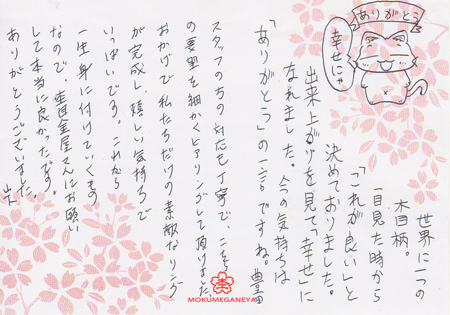 ありがとう
幸せにゃ
世界に一つの
木目柄。
一目見た時から
「これが良い」と
決めておりました。
出来上がりを見て「幸せ」に
なれました。今の気持ちは
「ありがとう」の一言ですね。豊田
スタッフの方の対応も丁寧で、こちら
の要望を細かくヒアリングして頂けました。
おかげで私たちだけの素敵なリング
が完成し、嬉しい気持ちで
いっぱいです。これから
一生身に付けていくもの
なので、杢目金屋さんにお願い
して本当に良かったです。
ありがとうございました。山下
MOKUMEGANEYA